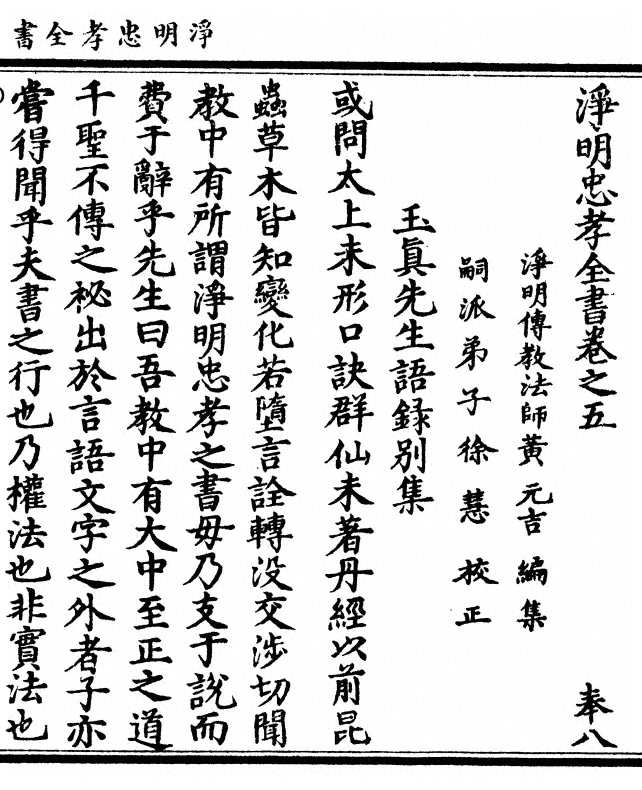 淨明忠孝全書
淨明忠孝全書卷之五 奉八
淨明傳教法師黃元吉編集
嗣派弟子徐慧校正
玉眞先生語録别集
或問太上未形口訣群仙未著丹經以前昆
蟲草木皆知變化若墮言詮轉没交涉切聞
教中有所謂淨明忠孝之書毋乃支于說而
費于辭乎先生曰吾教中有大中至正之道
千聖不傳之祕出於言語文字之外者子亦
嘗得聞乎夫書之行也乃權法也非實法也